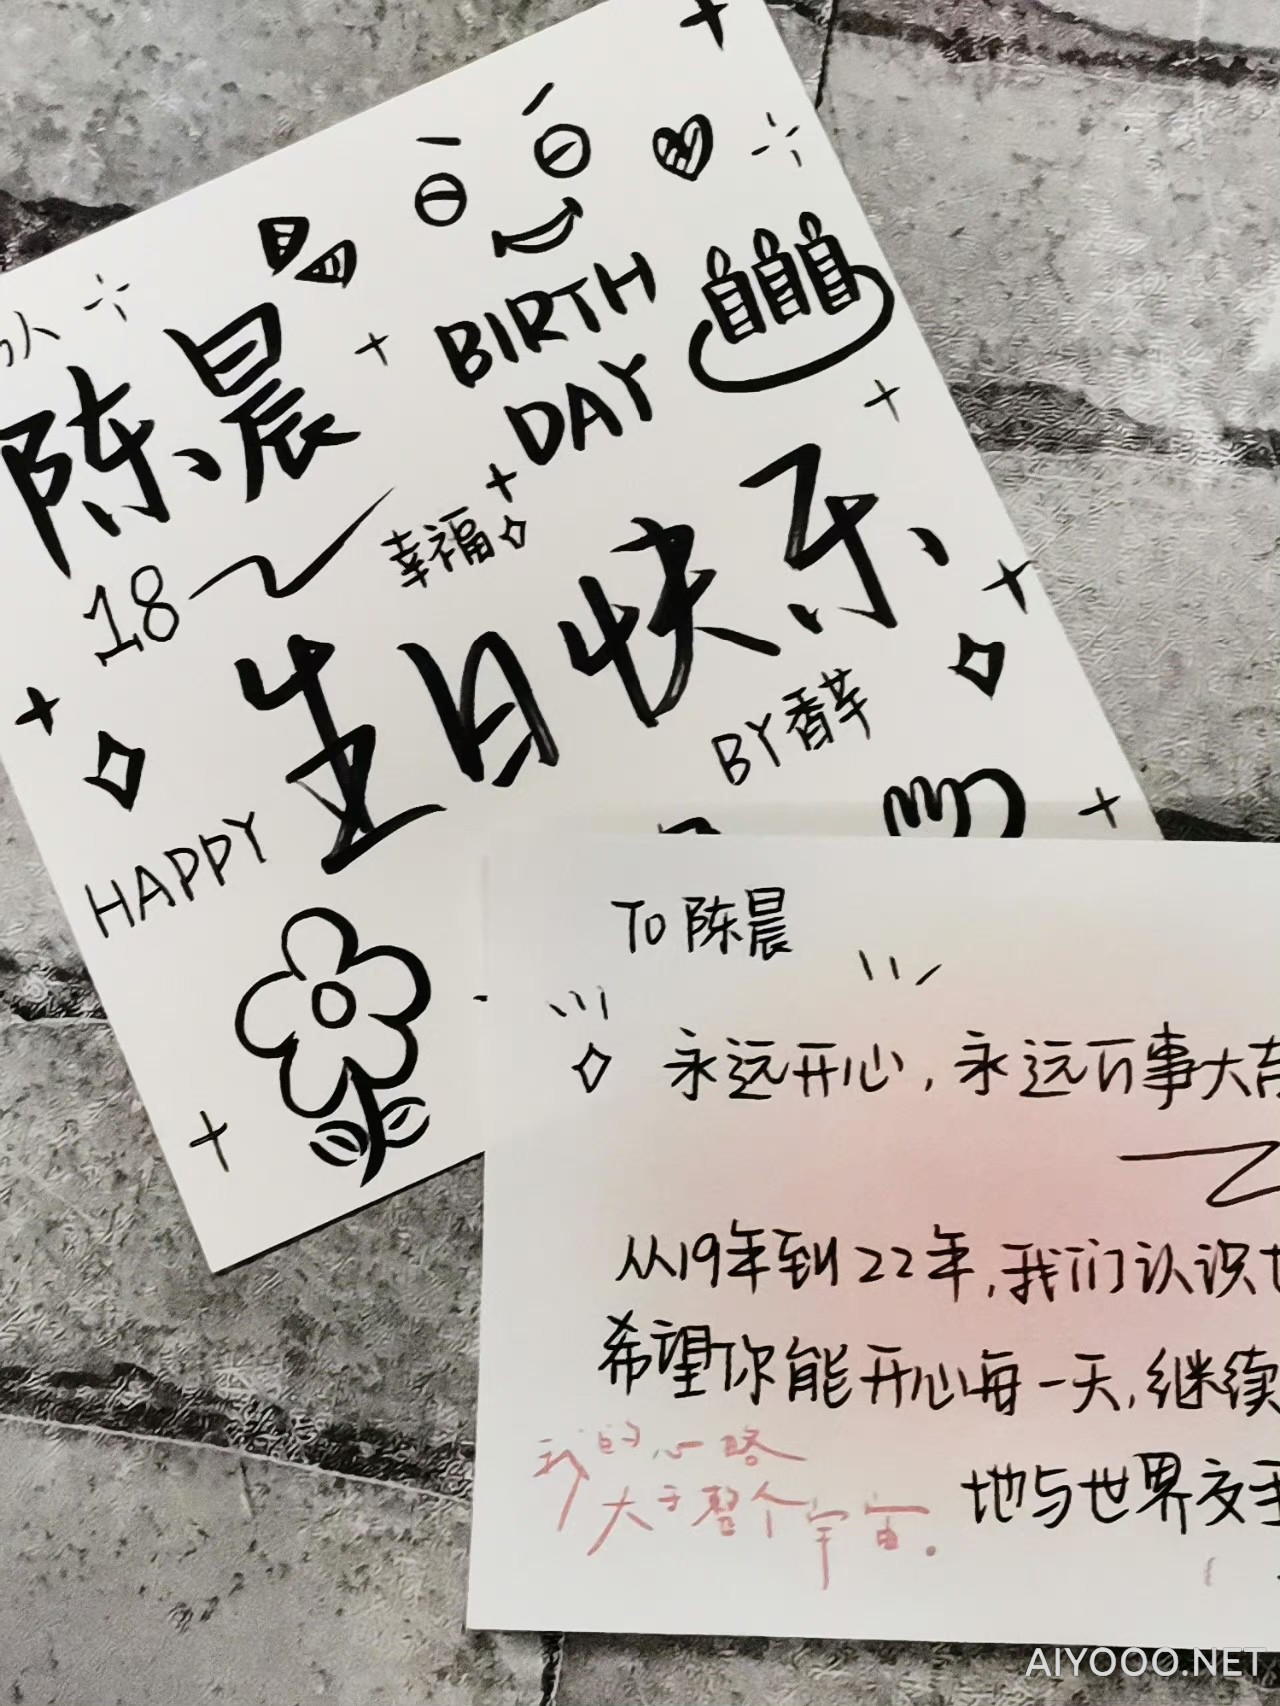 陈晨
BIRTH
DAY
18
幸福
生日快乐
BY香芋
HAPPY
To 陈晨
永远开心，永远万事大吉
从19年到22年,我们认识
希望你能开心每一天,继续
我的心路
大于整个宇宙.
地与世界交手
AIYOOO.NET